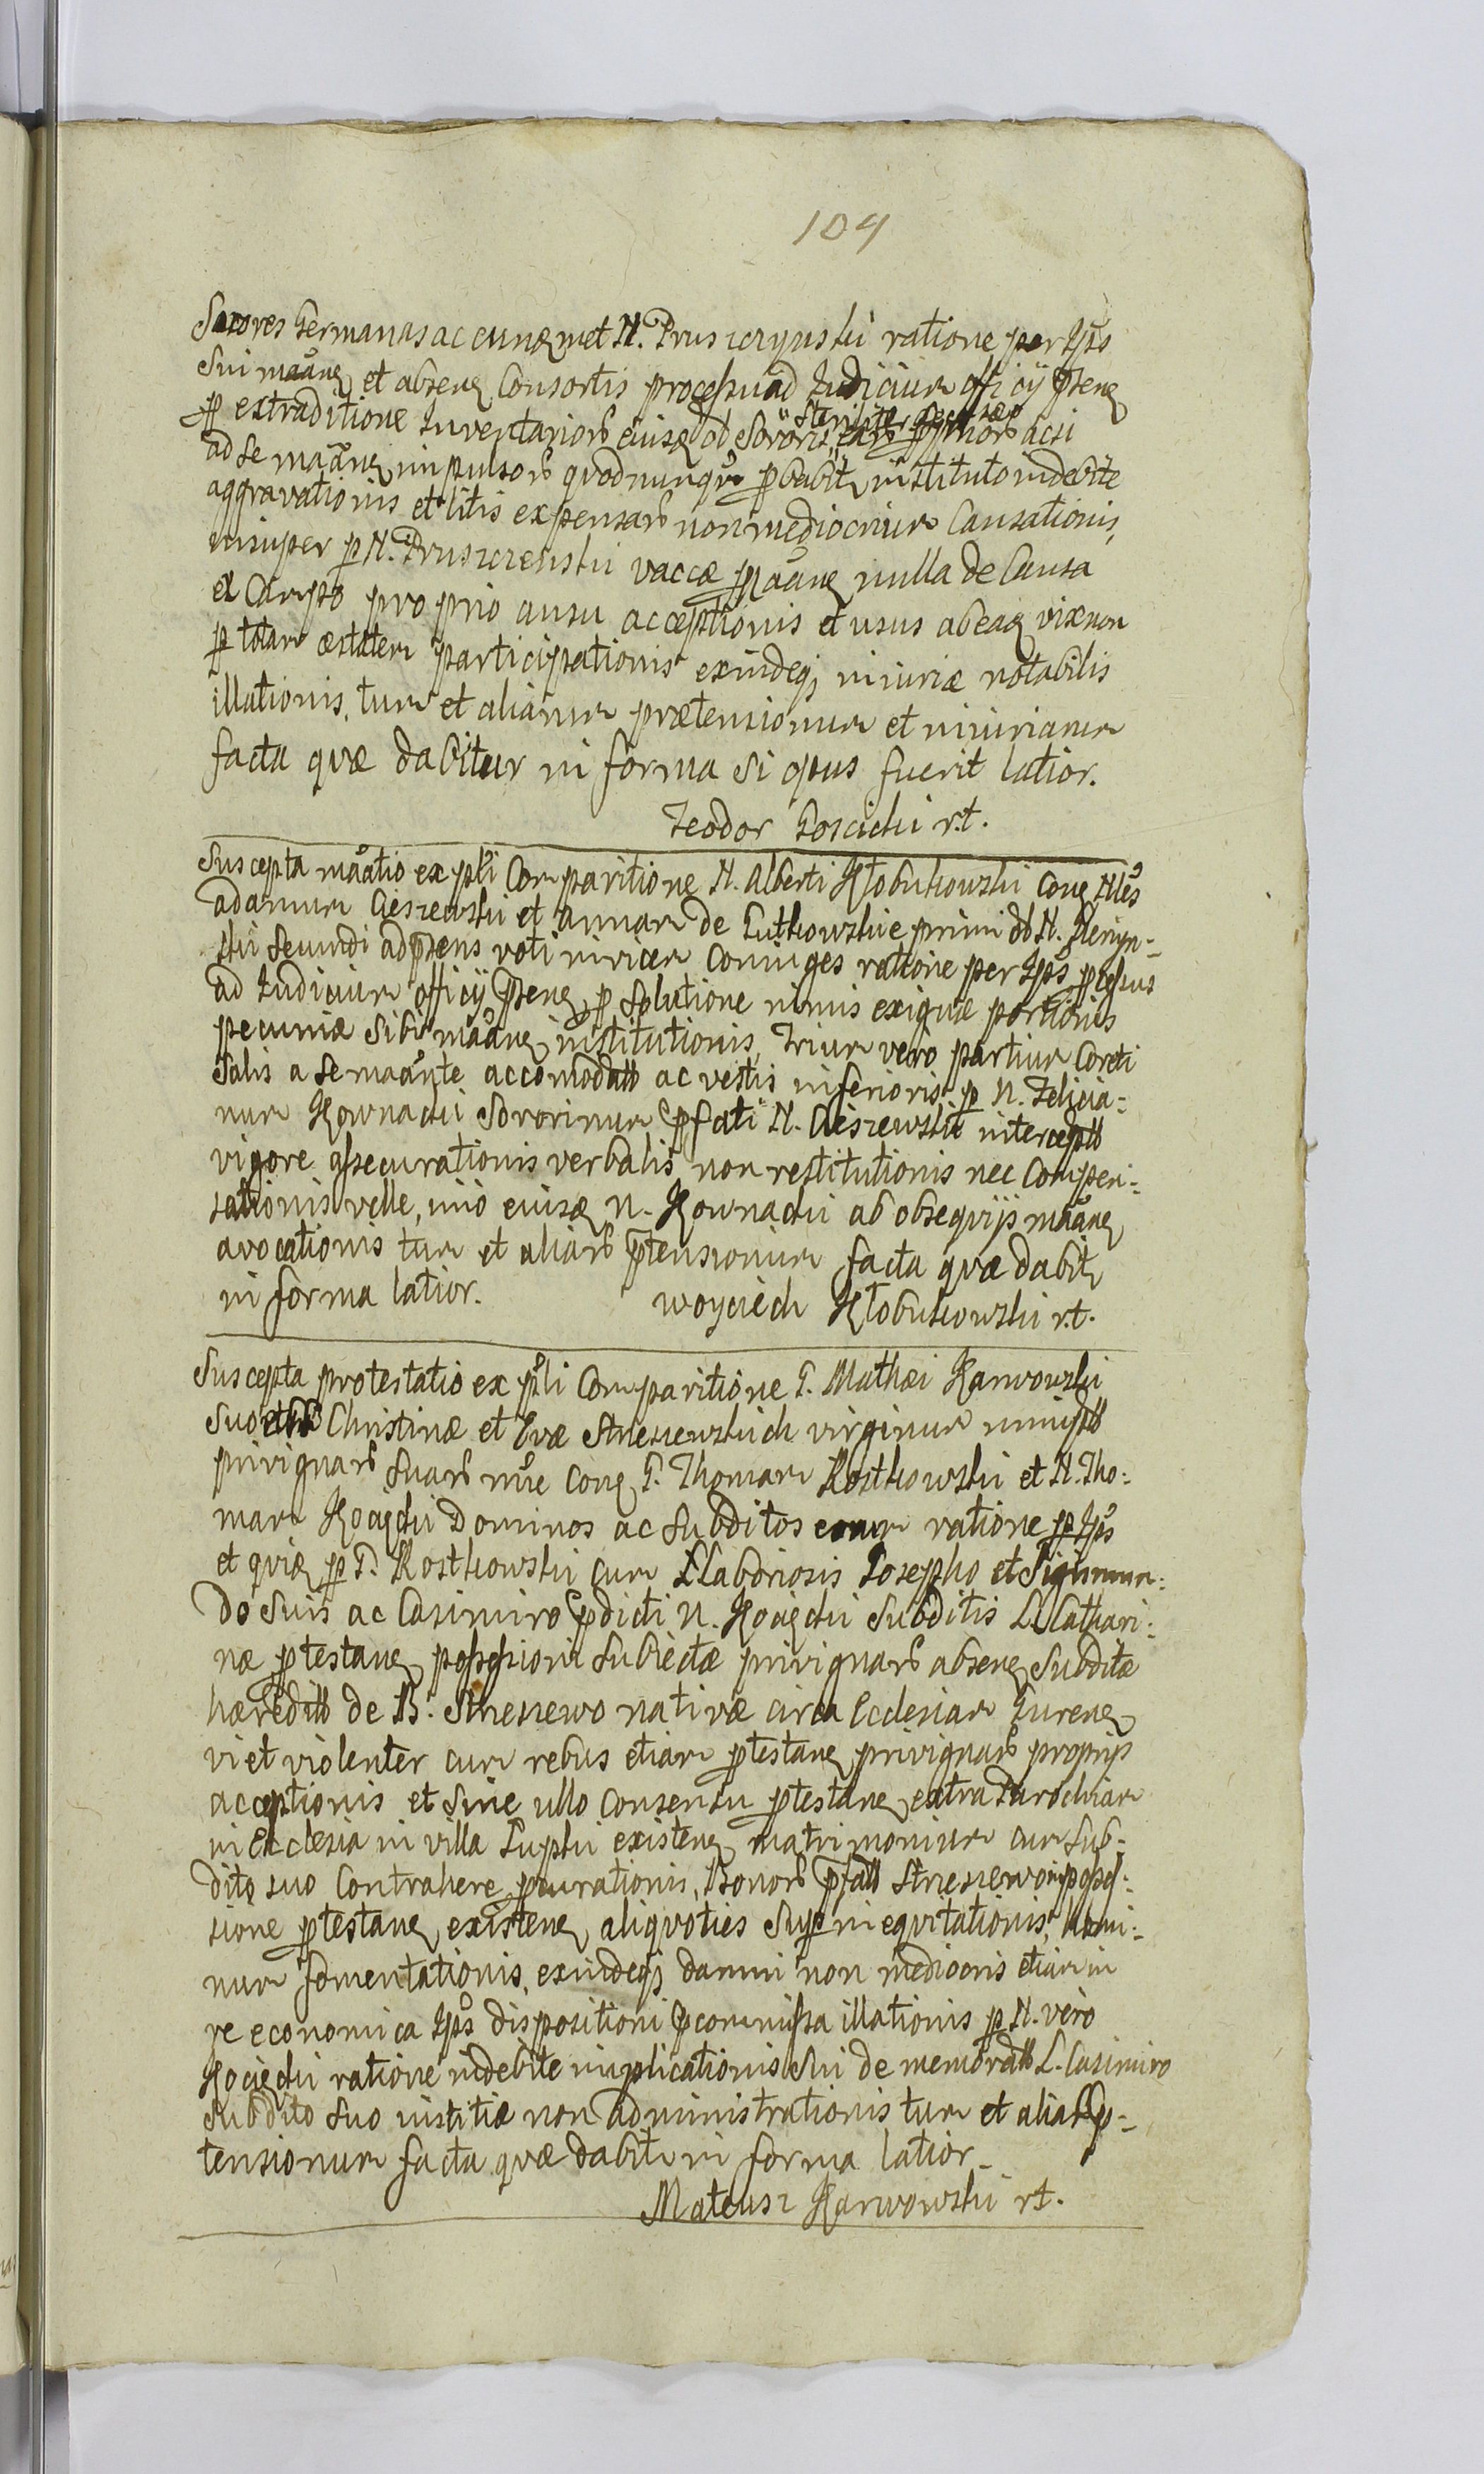 104
Sorores Germanas ac eundemet N. Pruszczynski ratione per Ips
Sui maane et absen Consortis processu ad Judicium officij psen
p extraditione Inventarior eiusq ob Sororis Steriliter decessae acsi
ad se maane impulsor quod nunqm pbabit instituto indebite
aggravationis et litis expensar non mediocrium Causationis,
insuper p N. Pruszczenski vaccae maane nulla de Causa
ex Campo proprio ausu acceptionis et usus ab eaq vix non
p totam aestatem participationis exindeq iniuriae notabilis
illationis, tum et aliarum praetensionum et iniuriarum
facta quae dabitur in forma si opus fuerit latior.
Teodor Goscicki r.t.
Suscepta maatio ex psli Comparitione N. Alberti Kłobukowski Con Nles
Adamum Cieszewski et Annam de Lutkowskie primi ob N. Plenyn-
ski secundi ad psens voti invicem Coniuges ratione per Ips pcessus
ad Judicium officij psen p solutione nimis exiguae portionis
pecuniae sibi maane institutionis, Trium vero partium Coreti
Salis a se maante accomodat ac vestis inferioris p N. Felicia-
num Kownacki Sororinum pfati N. Cieszewski intercept
vigore assecurationis verbalis non restitutionis nec Compen-
sationis velle, imo eiusq N. Kownacki ab obsequijs maane
avocationis tum et aliar ptensionum facta quae dabit
in forma latior. Woyciech Kłobukowski r.t.
Suscepta protestatio ex psli Comparitione G. Mathaei Karwowski
suo et Christinae et Evae Strzeszewskich virginum
privignar suar nne Con G. Thomam Kostkowski et N. Tho-
mam Kocięcki Dominos ac subditos eorum ratione p Ips
et quia p G. Kostkowski cum Llaboriosis Josepho et Sigismun-
do suis ac Casimiro pdicti N. Kocięcki subditis L Cathari-
nae ptestane possessioni subiectae privignar absen subditae
haeredit de B. Strzeszewo nativae circa Ecclesiam Juren
vi et violenter cum rebus etiam ptestane privignar proprijs
acceptionis et sine ullo consensu ptestane extra Parochiam
in Ecclesia in villa Lupki existen matrimonium cum sub-
dito suo Contrahere pcurationis, Bonor pfat Strzeszewo in posses-
sione ptestane existen aliquoties Sup in equitationis, homi-
num fomentationis, exindeq damni non mediocris etiam in
re economica Ips dispositioni pcommissa illationis p N. vero
Kocięcki ratione indebite implicationis Sui de memorat L. Casimiro
Subdito suo iustitiae non administrationis tum et aliar p-
tensionum facta quae dabit in forma latior
Mateusz Karwowski rt.